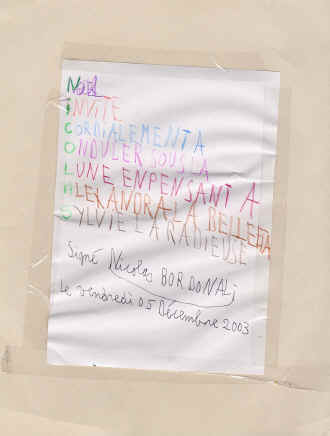 Noël
INVITE
CORDIALEMENT A
ONDULER SOUS LA
LUNE EN PENSANT A
LA BELLE
SYLVIE LA RADIEUSE
Signé Nicolas BORDONALi
Le vendredi 05 Décembre 2003